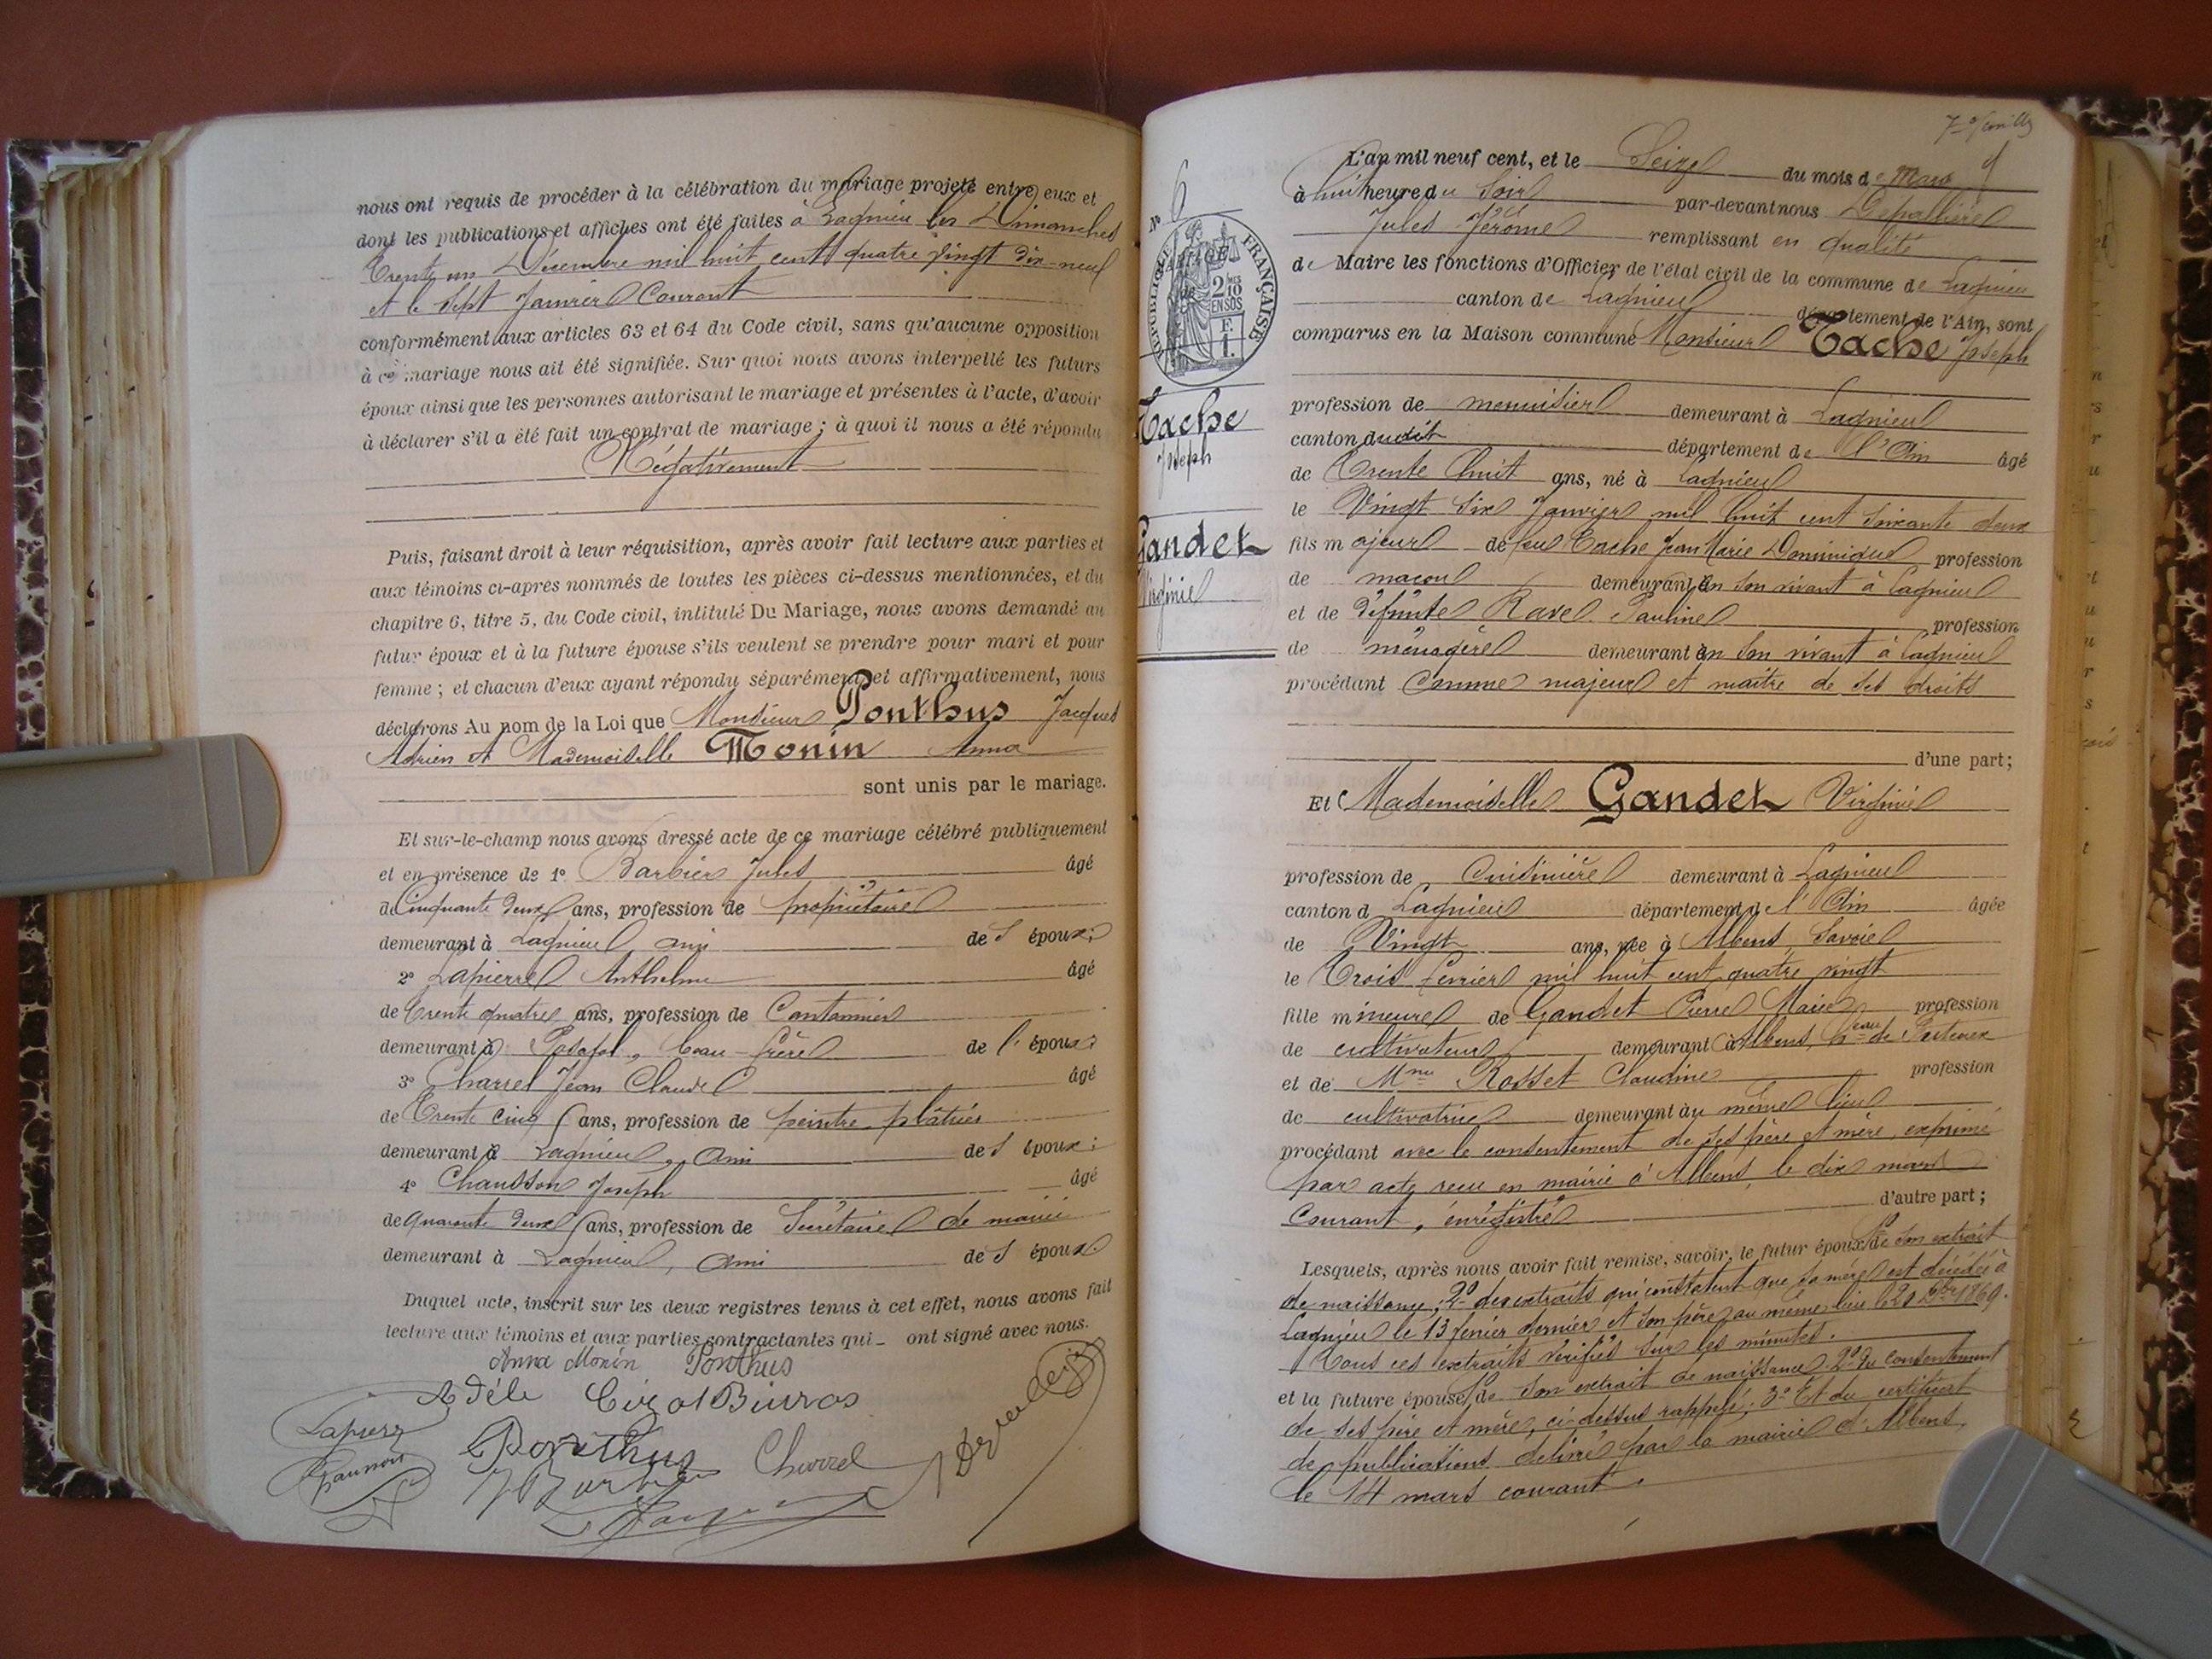 nous ont requis de procéder à la célébration du mariage projeté entre eux et
dont les publications et affiches ont été faites à Lagnieu les Dimanches
Trente un Décembre mil huit cent quatre vingt dix-neuf
et le sept Janvier Courant
conformément aux articles 63 et 64 du Code civil, sans qu'aucune opposition
à ce mariage nous ait été signifiée. Sur quoi nous avons interpellé les futurs
époux ainsi que les personnes autorisant le mariage et présentes à l'acte, d'avoir
à déclarer s'il a été fait un contrat de mariage ; à quoi il nous a été répondu
Négativement
Puis, faisant droit à leur réquisition, après avoir fait lecture aux parties et
aux témoins ci-après nommés de toutes les pièces ci-dessus mentionnées, et du
chapitre 6, titre 5, du Code civil, intitulé Du Mariage, nous avons demandé au
futur époux et à la future épouse s'ils veulent se prendre pour mari et pour
femme ; et chacun d'eux ayant répondu séparément et affirmativement, nous
déclarons Au nom de la Loi que Monsieur Ponthus Jacques
Adrien et Mademoiselle Monin Anna
sont unis par le mariage.
Et sur-le-champ nous avons dressé acte de ce mariage célébré publiquement
et en présence de 1° Barbier Jules âgé
de Cinquante deux ans, profession de propriétaire
demeurant à Lagnieu, ami des époux ;
2° Lapierre Anthelme âgé
de Trente quatre ans, profession de Cantonnier
demeurant à Posafol, beau-frère de l'époux ;
3° Charrel Jean Claude âgé
de Trente cinq ans, profession de peintre plâtrier
demeurant à Lagnieu, Ami des époux ;
4° Chausson Joseph âgé
de quarante deux ans, profession de Secrétaire de mairie
demeurant à Lagnieu, Ami des époux.
Duquel acte, inscrit sur les deux registres tenus à cet effet, nous avons fait
lecture aux témoins et aux parties contractantes qui ont signé avec nous.
Anna Monin Ponthus
Adéle
Lapierre Ponthus Charrel
J Barbier
L'an mil neuf cent, et le Seize du mois de Mars
à huit heure du Soir par-devant nous Depallière
Jules Jérôme remplissant en qualité
de Maire les fonctions d'Officier de l'état civil de la commune de Lagnieu
canton de Lagnieu département de l'Ain, sont
comparus en la Maison commune Monsieur Tache Joseph
profession de menuisier demeurant à Lagnieu
canton dudit département de l'Ain âgé
de Trente huit ans, né à Lagnieu
le Vingt Six Janvier mil huit cent soixante deux
fils majeur de feu Tache Jean Marie Dominique profession
de maçon demeurant en son vivant à Lagnieu
et de défunte Ravel Pauline profession
de ménagère demeurant en son vivant à Lagnieu
procédant Comme majeur et maître de ses droits
d'une part ;
Et Mademoiselle Gandet Virginie
profession de Cuisinière demeurant à Lagnieu
canton d Lagnieu département de l'Ain âgée
de Vingt ans, née à Albens, Savoie
le Trois février mil huit cent quatre vingt
fille mineure de Gandet Pierre Marie profession
de cultivateur demeurant à Albens, hau de
et de Mme Rosset Claudine profession
de cultivatrice demeurant au même lieu
procédant avec le consentement de ses père et mère, exprimé
par acte reçu en mairie d'Albens, le dix mars
Courant, enregistré d'autre part ;
Lesquels, après nous avoir fait remise, savoir, le futur époux 1° de son extrait
de naissance ; 2° des extraits qui constatent que sa mère est décédée à
Lagnieu le 13 février dernier et son père au même lieu le 20 1869.
Tous ces extraits vérifiés sur les minutes.
et la future épouse 1° de son extrait de naissance 2° du consentement
de ses père et mère, ci-dessus rappelé ; 3° Et du certificat
de publications délivré par la mairie d'Albens,
le 14 mars courant.
N° 6
RÉPUBLIQUE FRANÇAISE
2/10 EN SUS
F.
1.
Tache
Joseph
Gandet
Virginie